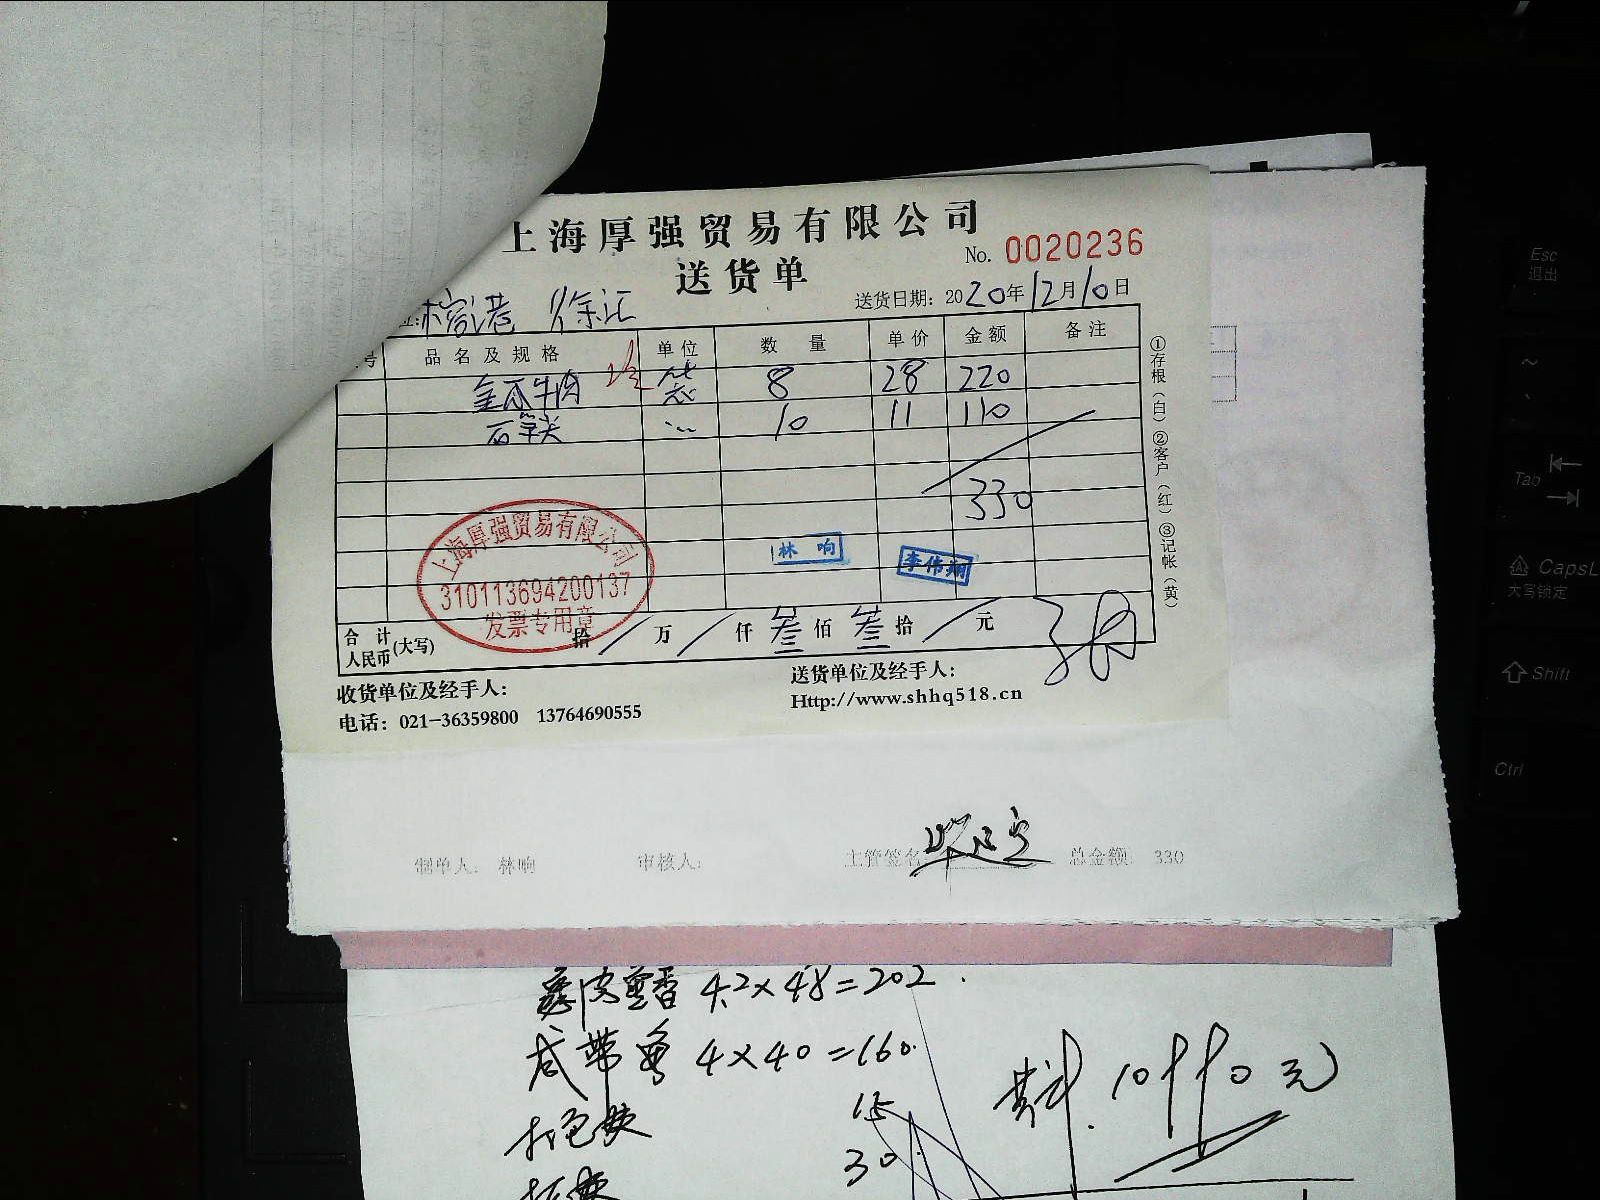 上海厚强贸易有限公司
No. 0020236
送货单
送货日期: 2020年12月10日
徐汇
号 品名及规格 单位 数量 单价 金额 备注
金瓜牛肉 袋 8 28 220
10 11 110
330
上海厚强贸易有限公司
310113694200137
发票专用章
林响
李伟翔
合计人民币(大写) 拾 万 仟 叁 佰 叁 拾 元
收货单位及经手人:
送货单位及经手人:
电话: 021-36359800 13764690555
Http://www.shhq518.cn
①存根(白)②客户(红)③记帐(黄)
制单人: 林响 审核人: 主管签名 总金额: 330
4.2×48=202.
咸带鱼 4×40=160.
打包 15
30.
元
Esc
退出
Tab
CapsL
大写锁定
Shift
Ctrl